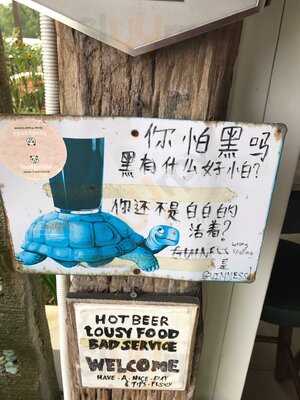 你怕黑吗
黑有什么好怕?
你还不是白白的
活着?
GUINESS
wrong
spelling
是
GUINNESS
HOT BEER
LOUSY FOOD
BAD SERVICE
WELCOME
HAVE-A-NICE-DAY